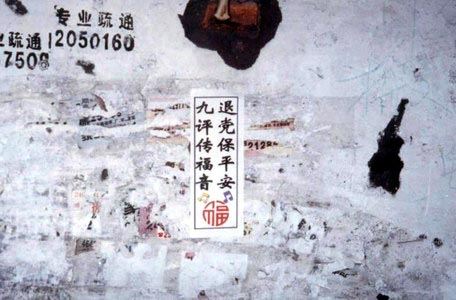 专业疏通
业疏通 12050160
7508
退党保平安
九评传福音
福
2128